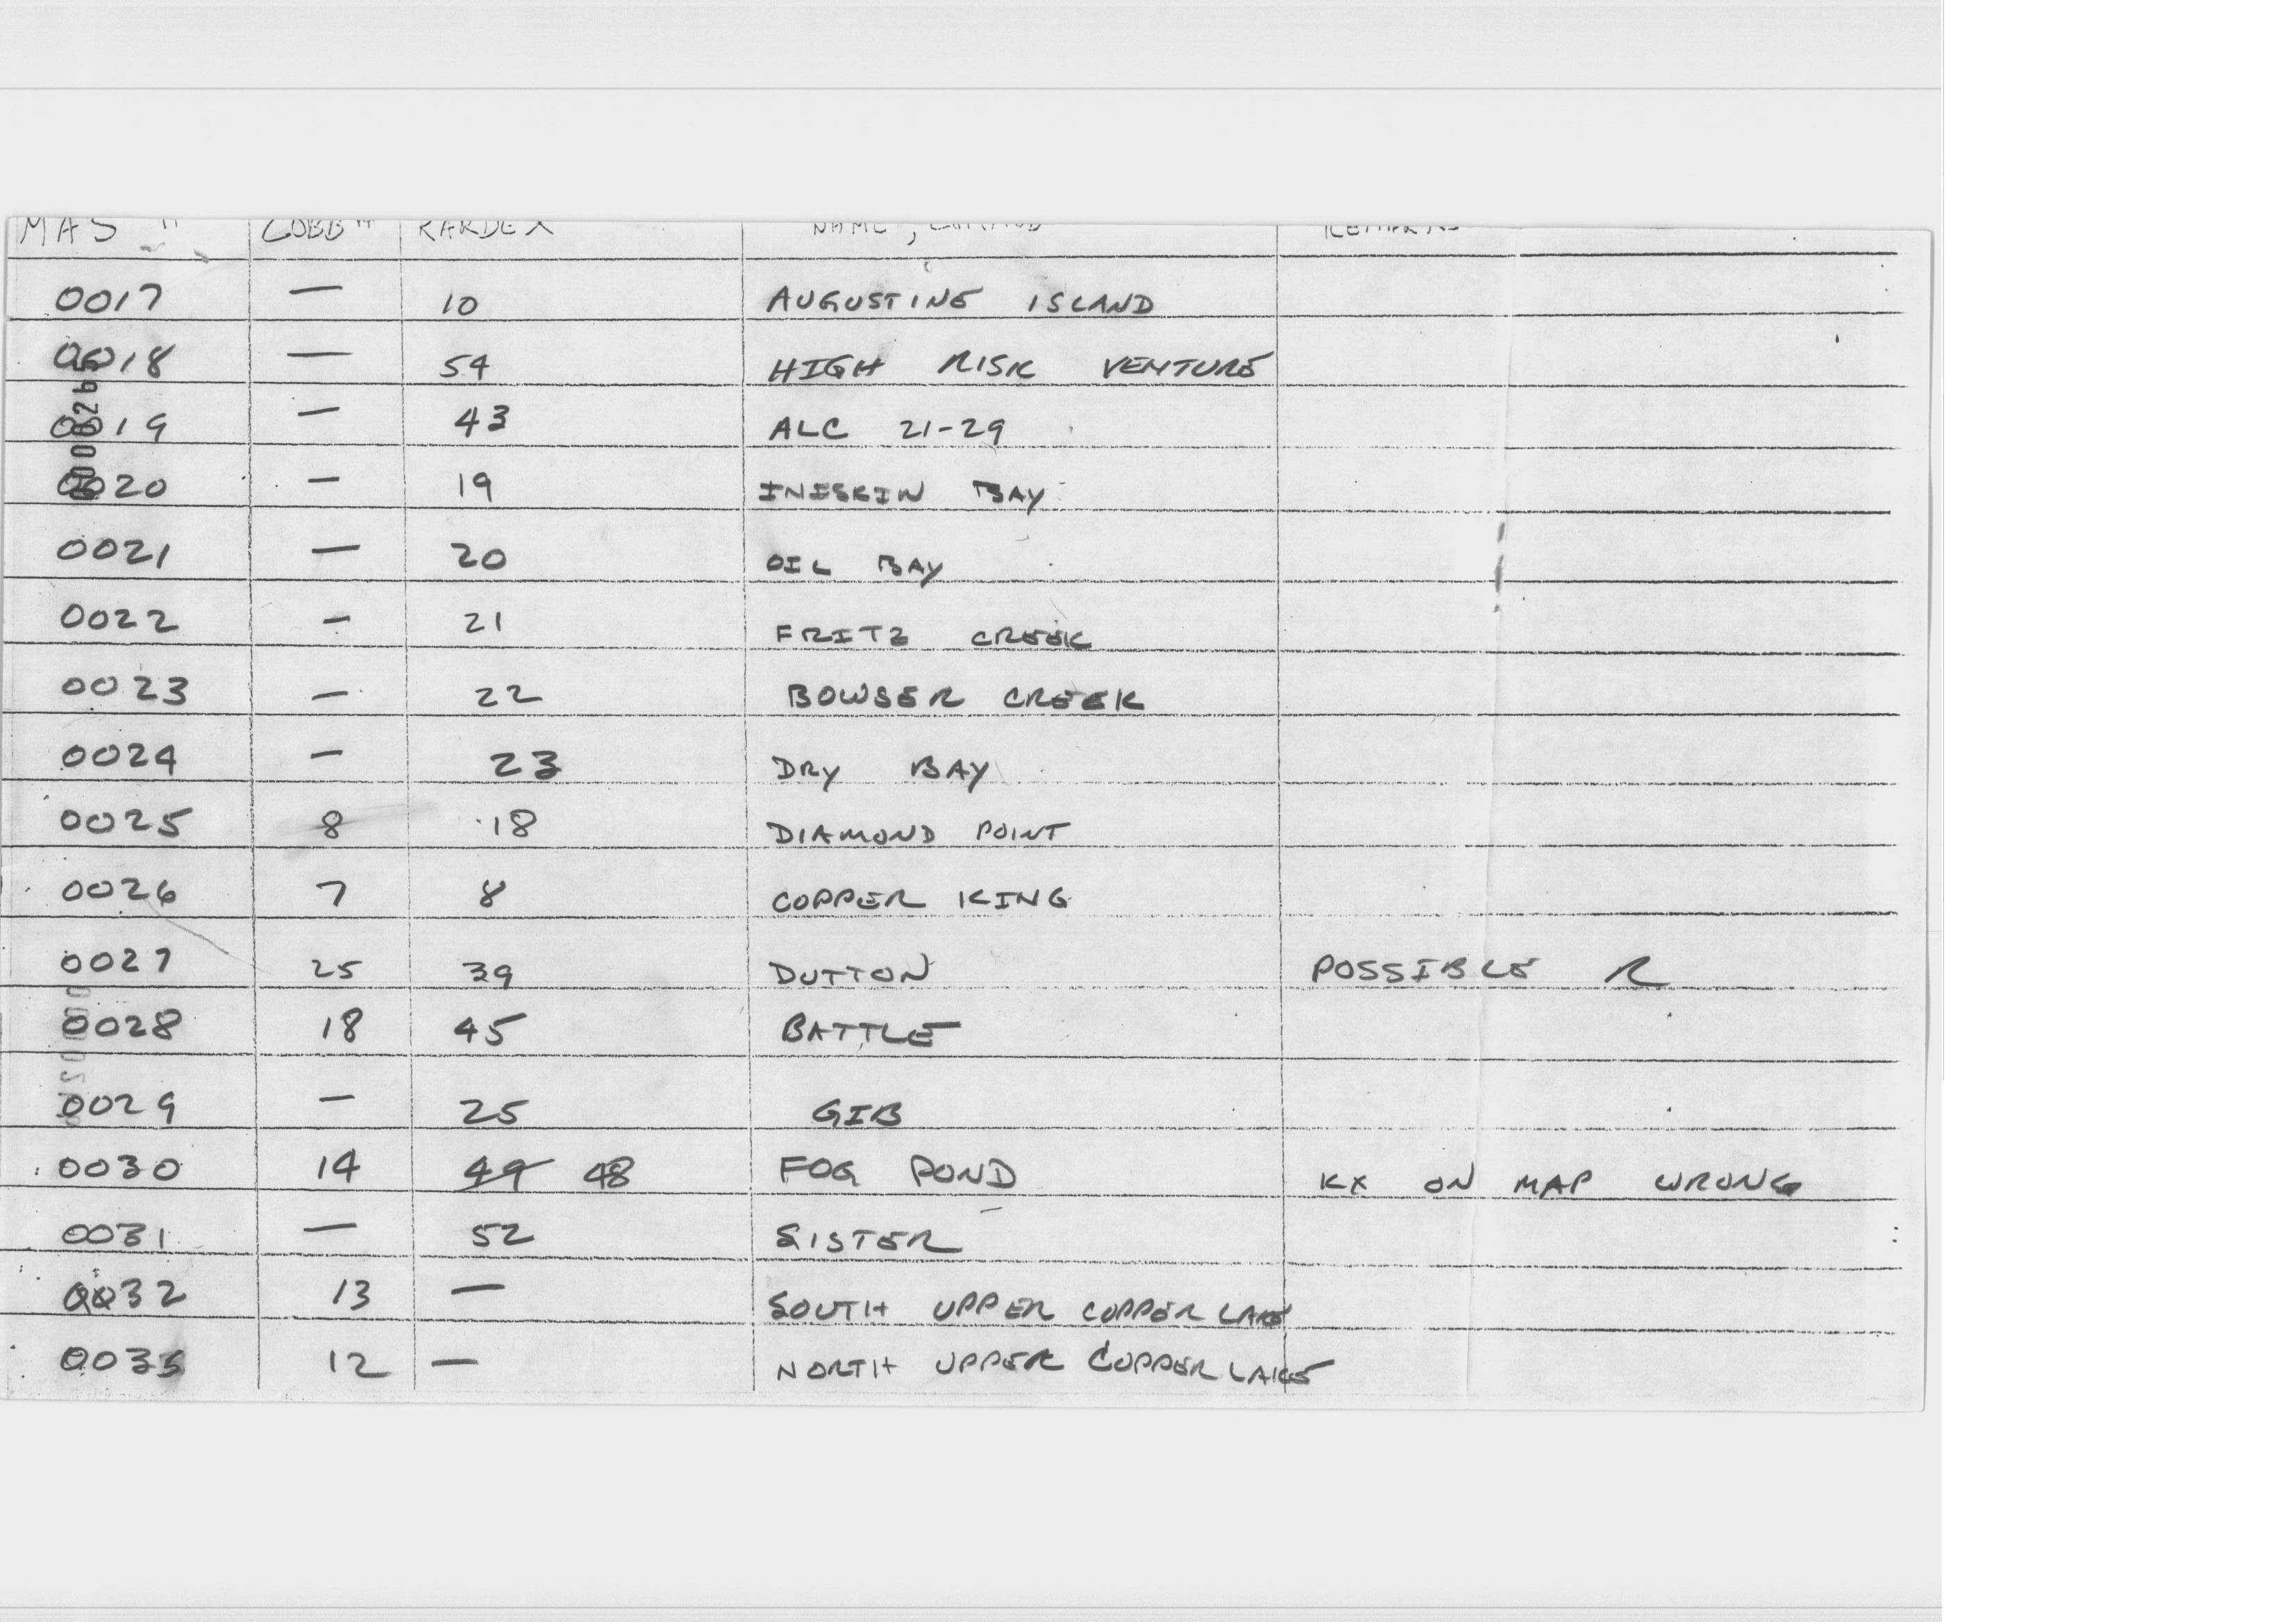 MAS # COBB # KARDEX NAME, REMARKS
0017 — 10 AUGUSTINE ISLAND
0018 — 54 HIGH RISK VENTURE
0019 — 43 ALC 21-29
0020 — 19 INISKIN BAY
0021 — 20 OIL BAY
0022 — 21 FRITZ CREEK
0023 — 22 BOWSER CREEK
0024 — 23 DRY BAY
0025 8 18 DIAMOND POINT
0026 7 8 COPPER KING
0027 25 39 DUTTON POSSIBLE R
0028 18 45 BATTLE
0029 — 25 GIB
0030 14 49 48 FOG POND KX ON MAP WRONG
0031 — 52 SISTER
0032 13 — SOUTH UPPER COPPER LAKE
0033 12 — NORTH UPPER COPPER LAKE